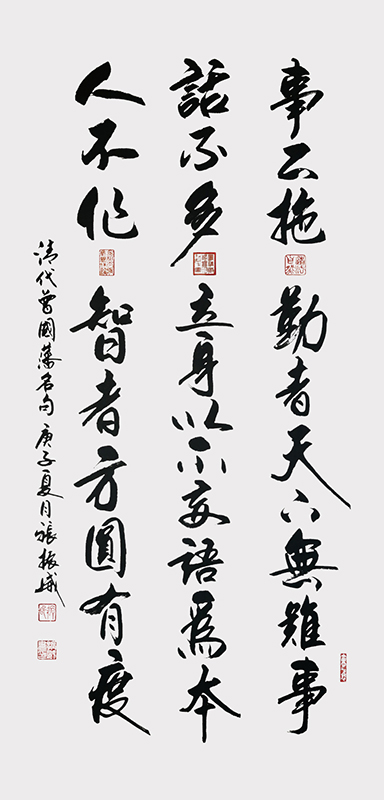 事不拖 勤者天下無難事
話不多 立身以不妄語爲本
人不作 智者方圓有度
清代曾國藩名句 庚子夏月 張振威